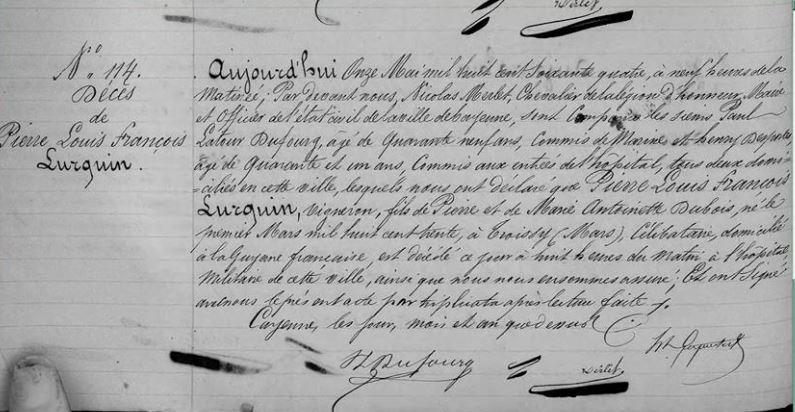 Merlet.
N° 114.
Décès
de
Pierre Louis François
Lurquin.
Aujourd'hui Onze Mai mil huit cent soixante quatre, à neuf heures de la
Matinée; Par devant nous, Nicolas Merlet, Chevalier de la légion d'honneur, Maire
et Officier de l'état civil de la ville de Cayenne, sont Comparus les sieurs Paul
Latour Dufourg, âgé de Quarante neuf ans, Commis de Marine et henry
âgé de Quarante et un ans, Commis aux entrées de l'hôpital, tous deux domi-
-ciliés en cette ville, lesquels nous ont déclaré que Pierre Louis François
Lurquin, vigneron, fils de Pierre et de Marie Antoinette Dubois, né le
premier Mars mil huit cent trente, à Troissy (Mars), Célibataire, domicilié
à la Guyane française, est décédé ce jour à huit heures du Matin à l'hôpital
Militaire de cette ville, ainsi que nous nous en sommes assuré; Et ont Signé
avec nous le présent acte par triplicata après lecture faite.
Cayenne, les jour, mois et an que dessus
Dufourg
Merlet.